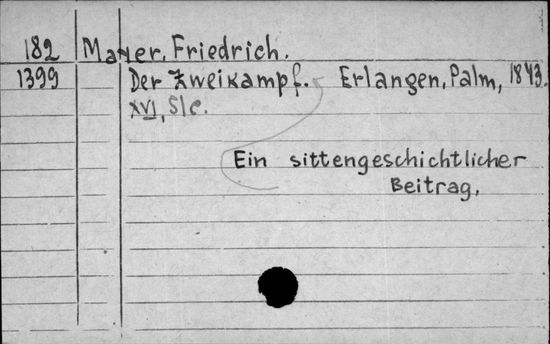 182 Mayer, Friedrich.
1399 Der Zweikampf. Erlangen, Palm, 1843.
XVI, S/c.
Ein sittengeschichtlicher
Beitrag.